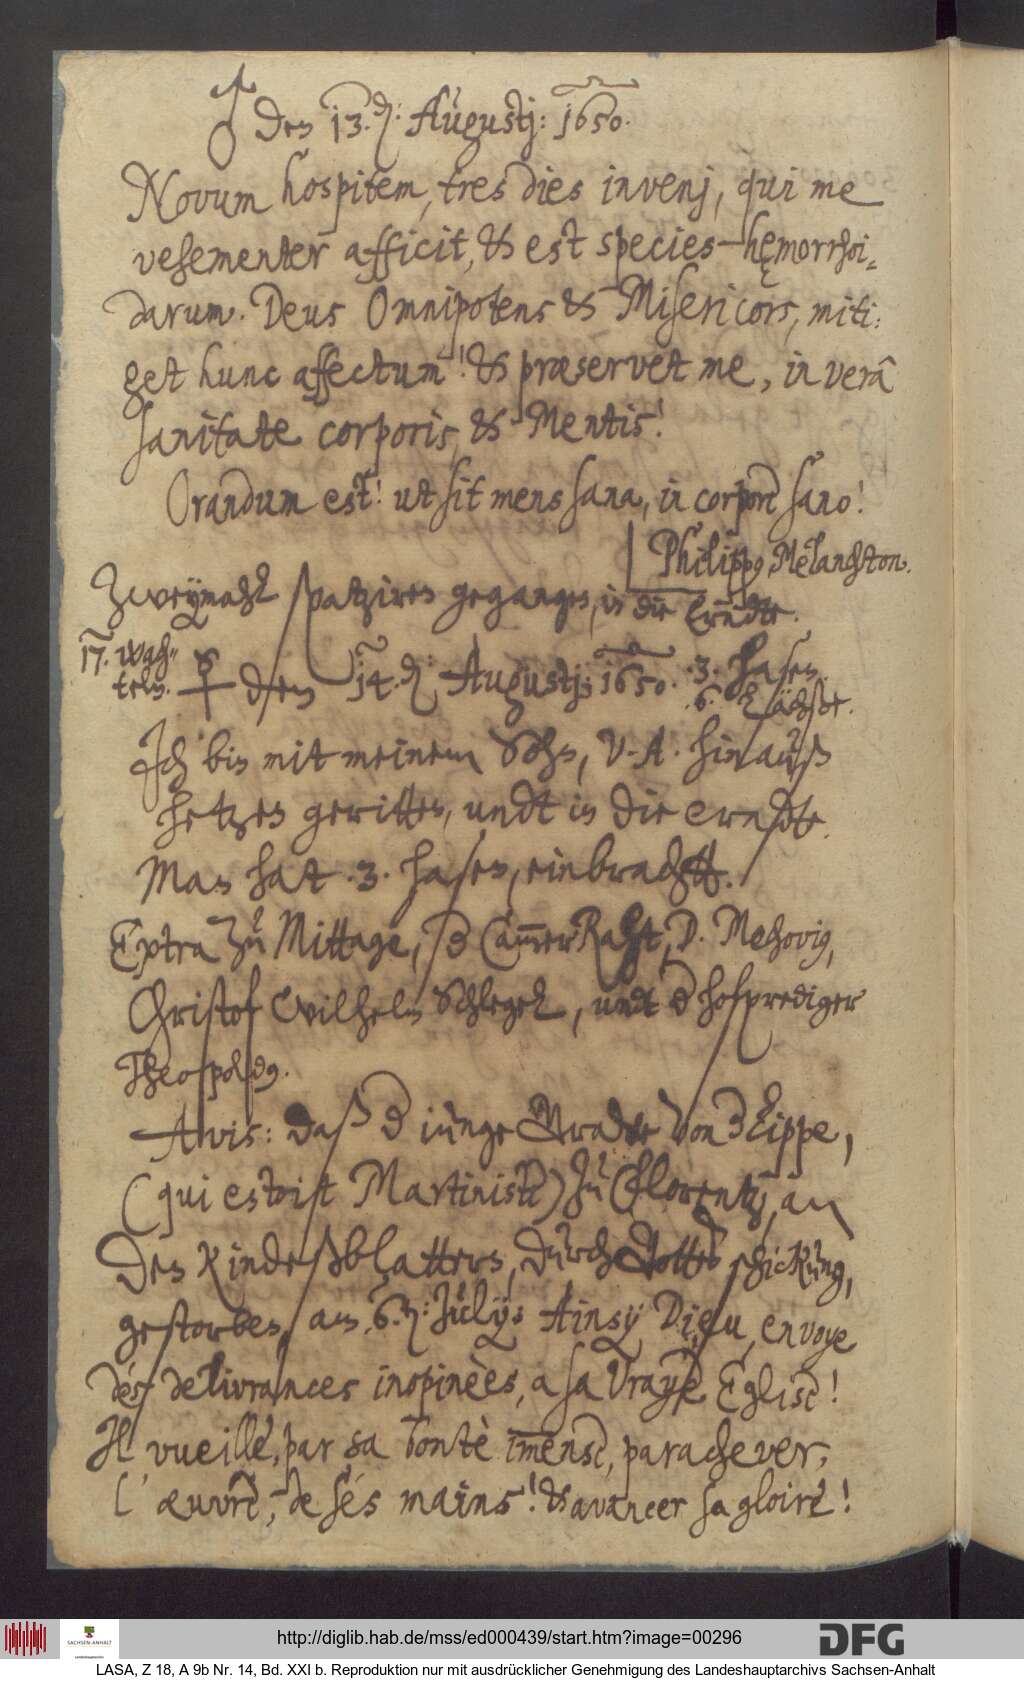 ♂ den 13. d: Augustj: 1650.
Novum hospitem, tres dies invenj, qui me
vehementer afficit, & est species hęmorrhoi„
darum. Deus Omnipotens & Misericors, miti:
get hunc affectum! & præservet me, in verâ
sanitate corporis, & Mentis!
Orandum est! ut sit mens sana, in corpore sano!
Philippus Melanchton.
Zweymahl spatziren gegangen, in die Erndte.
17. wach„
teln.
☿ den 14. d: Augustj; 1650. .3. hasen.
.6. Lächße.
Ich bin mit meinem Sohn, V. A. hinauß
hetzen geritten, undt in die erndte.
Man hat .3. hasen, einbrachtt.
Extra zu Mittage, d CammerRaht, D. Mechovius,
Christof Wilhelm Schlegel, undt d hofprediger
Theopoldus.
Avis: daß d iunge Grave von d Lippe,
(qui estoist Martiniste) zu Florentz, an
den Kindeßblattern, durch Gottes schickung,
gestorben, am .6. d: Julij: Ainsy Dieu, envoye
dés delivrances inopinèès, a sa Vraye Eglise!
Il vueille, par sa bontè immense, parachever,
l'œuvre, de sés mains! & avancer sa gloire!
http://diglib.hab.de/mss/ed000439/start.htm?image=00296
SACHSEN-ANHALT
DFG
LASA, Z 18, A 9b Nr. 14, Bd. XXI b. Reproduktion nur mit ausdrücklicher Genehmigung des Landeshauptarchivs Sachsen-Anhalt